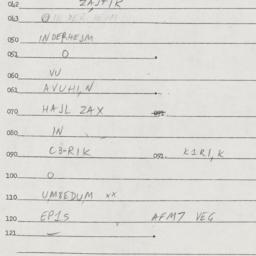 062 ZAJTIK
043
050 INDERHEIM
051 O
060 VU
061 AVUHI,N
070 HAJL ZAX 071
080 IN
090 C3-RIK 091 K1RI,K
100 O
110 UM8EDUM xx
120 EP1S AFM7 VEG
121